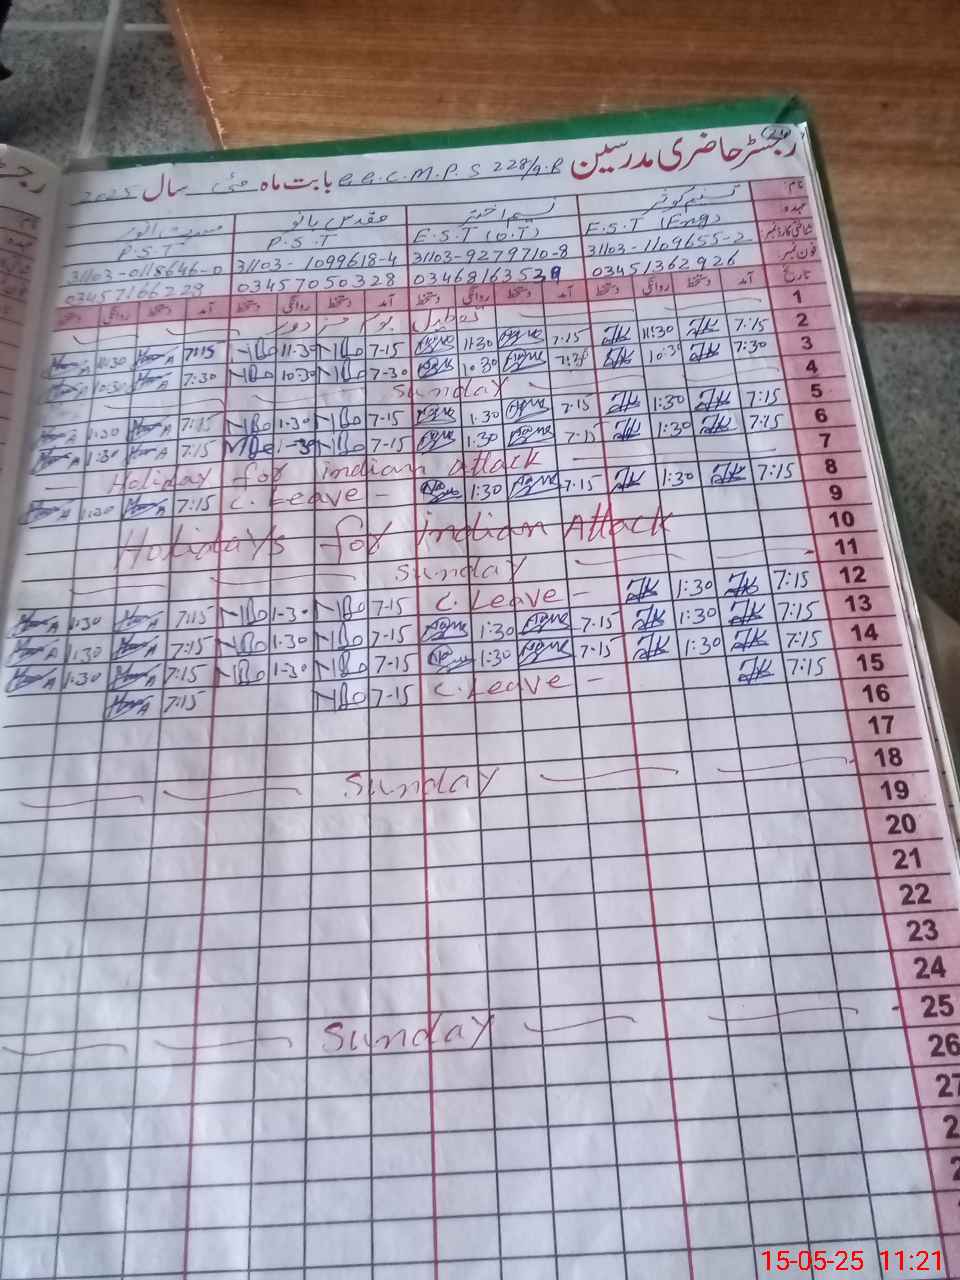 رجسٹر حاضری مدرسین G.G.C.M.P.S 228/9.R بابت ماہ مئی سال 2025
نام تسنیم کوثر نسیم اختر مقدس بانو
عہدہ E.S.T (Eng) E.S.T (O.T) P.S.T P.S.T
شناختی کارڈ نمبر 31103-1109655-2 31103-9279710-8 31103-1099618-4 31103-0118646-0
فون نمبر 03451362926 03468163539 03457050328 03457166229
تاریخ آمد دستخط روانگی دستخط آمد دستخط روانگی دستخط آمد دستخط روانگی دستخط آمد دستخط روانگی دستخط
1
2 7:15 11:30 7:15 11:30 7-15 11-30 7:15 11:30
3 7:30 10:30 10:30 7-30 10:30 7:30 10:30
4 Sunday
5 7:15 1:30 7:15 1:30 7-15 1-30 7:15 1:30
6 7:15 1:30 7:15 1:30 7-15 1-30 7:15 1:30
7 Holiday for indian attack
8 7:15 1:30 7-15 1:30 C. Leave 7:15 1:30
9
10 Holidays for indian Attack
11 Sunday
12 7:15 1:30 C. Leave 7-15 1-30 7:15 1:30
13 7:15 1:30 7:15 1:30 7-15 1-30 7:15 1:30
14 7:15 1:30 7-15 1:30 7-15 1-30 7:15 1:30
15 7:15 C. Leave 7-15 7:15
16
17
18 Sunday
19
20
21
22
23
24
25 Sunday
26
27
15-05-25 11:21